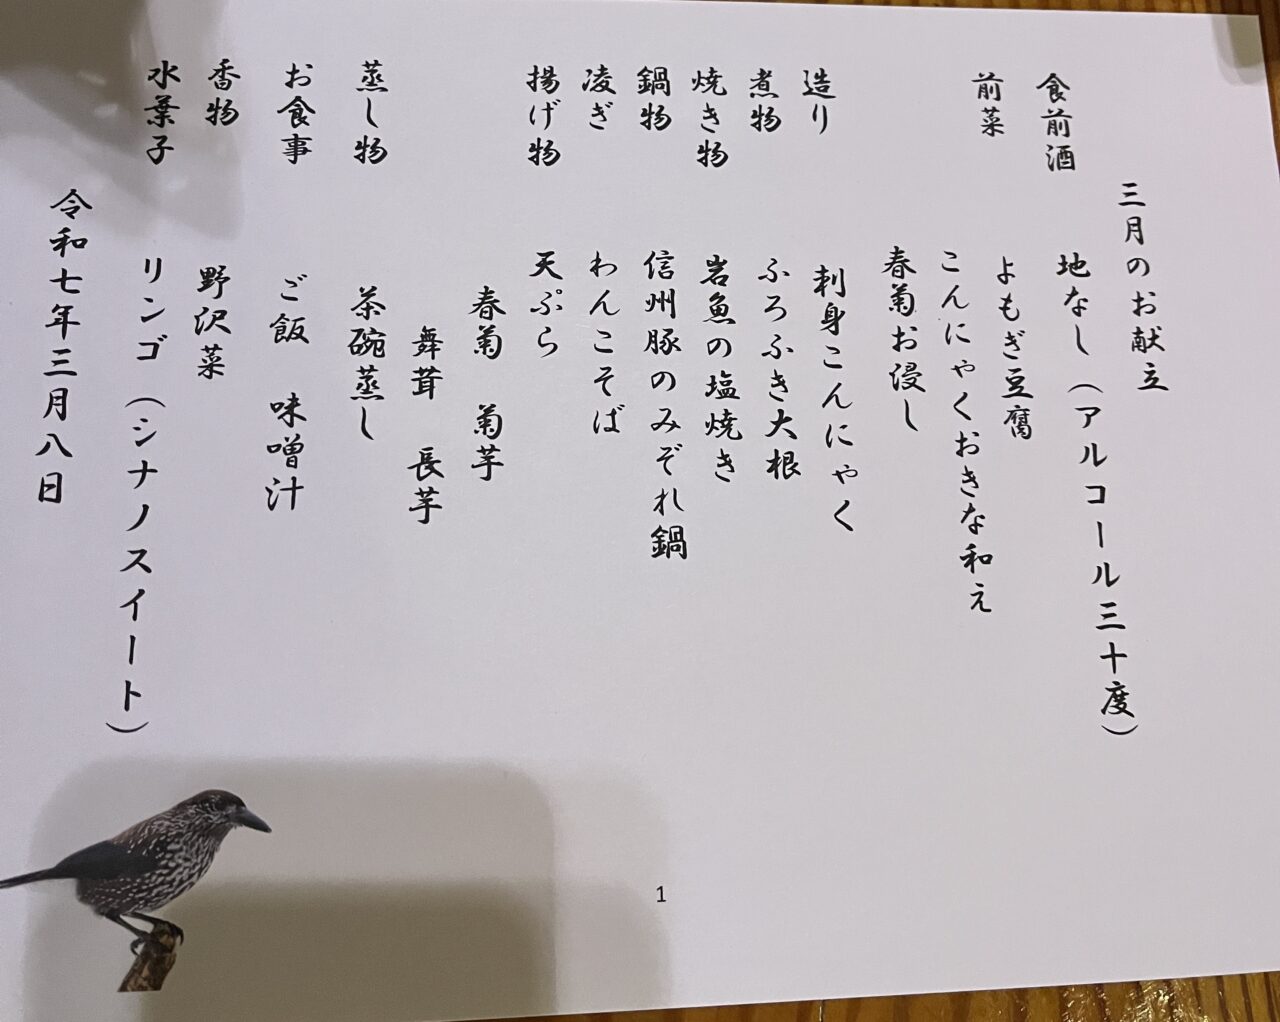 三月のお献立
食前酒　地なし（アルコール三十度）
前菜　よもぎ豆腐
こんにゃくおきな和え
春菊お浸し
造り　刺身こんにゃく
煮物　ふろふき大根
焼き物　岩魚の塩焼き
鍋物　信州豚のみぞれ鍋
凌ぎ　わんこそば
揚げ物　天ぷら
春菊　菊芋
舞茸　長芋
蒸し物　茶碗蒸し
お食事　ご飯　味噌汁
香物　野沢菜
水葉子　リンゴ（シナノスイート）
令和七年三月八日
1